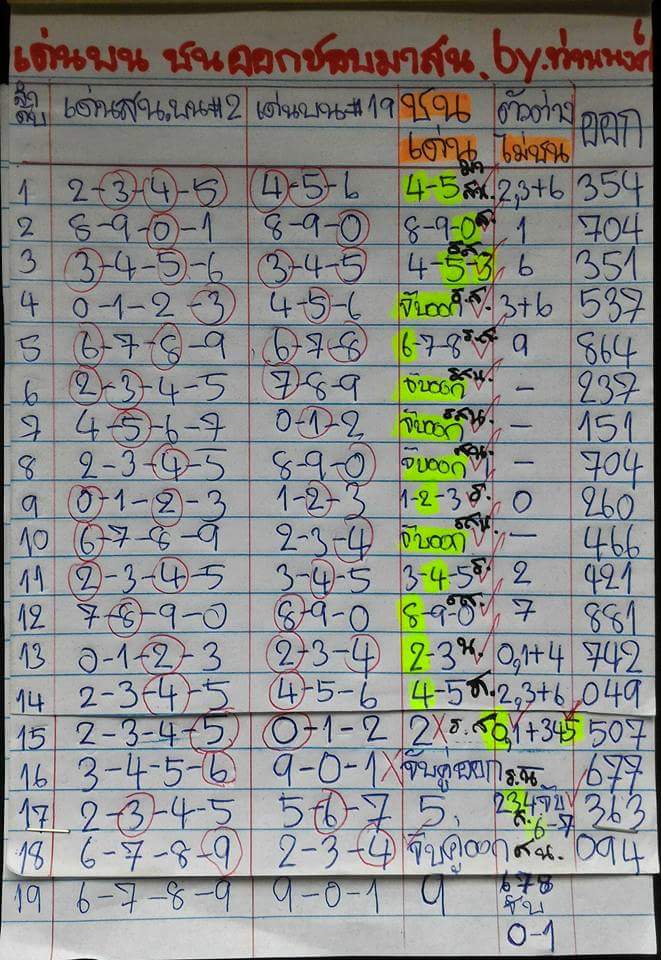 เด่นบน ชนออกชอบมาสน. by.ท่านพงศ์
ลำดับ เด่นสน.บน#2 เด่นบน#19 ชน ตัวต่าง ออก
เด่น ไม่ชน
1 2-3-4-5 4-5-6 4-5 มาสน. 2,3+6 354
2 8-9-0-1 8-9-0 8-9-0 ส. 1 704
3 3-4-5-6 3-4-5 4-5-3 6 351
4 0-1-2-3 4-5-6 จับออก ร.ส. 3+6 537
5 6-7-8-9 6-7-8 6-7-8 ร.ส. 9 864
6 2-3-4-5 7-8-9 จับออก รสน. - 237
7 4-5-6-7 0-1-2 จับออก รสน. - 151
8 2-3-4-5 8-9-0 จับออก สน. - 704
9 0-1-2-3 1-2-3 1-2-3 ร. 0 260
10 6-7-8-9 2-3-4 จับออก รสน. - 466
11 2-3-4-5 3-4-5 3-4-5 ร. 2 421
12 7-8-9-0 8-9-0 8-9-0 รส. 7 881
13 0-1-2-3 2-3-4 2-3 น. 0,1+4 742
14 2-3-4-5 4-5-6 4-5 ส. 2,3+6 049
15 2-3-4-5 0-1-2 2 X ร.ส 0,1+345 507
16 3-4-5-6 9-0-1 X จับคู่ออก ร.น 677
17 2-3-4-5 5-6-7 5, 234 จับ ส. 6-7 363
18 6-7-8-9 2-3-4 จับคู่ออก สน. 094
19 6-7-8-9 9-0-1 9 678
จับ
0-1